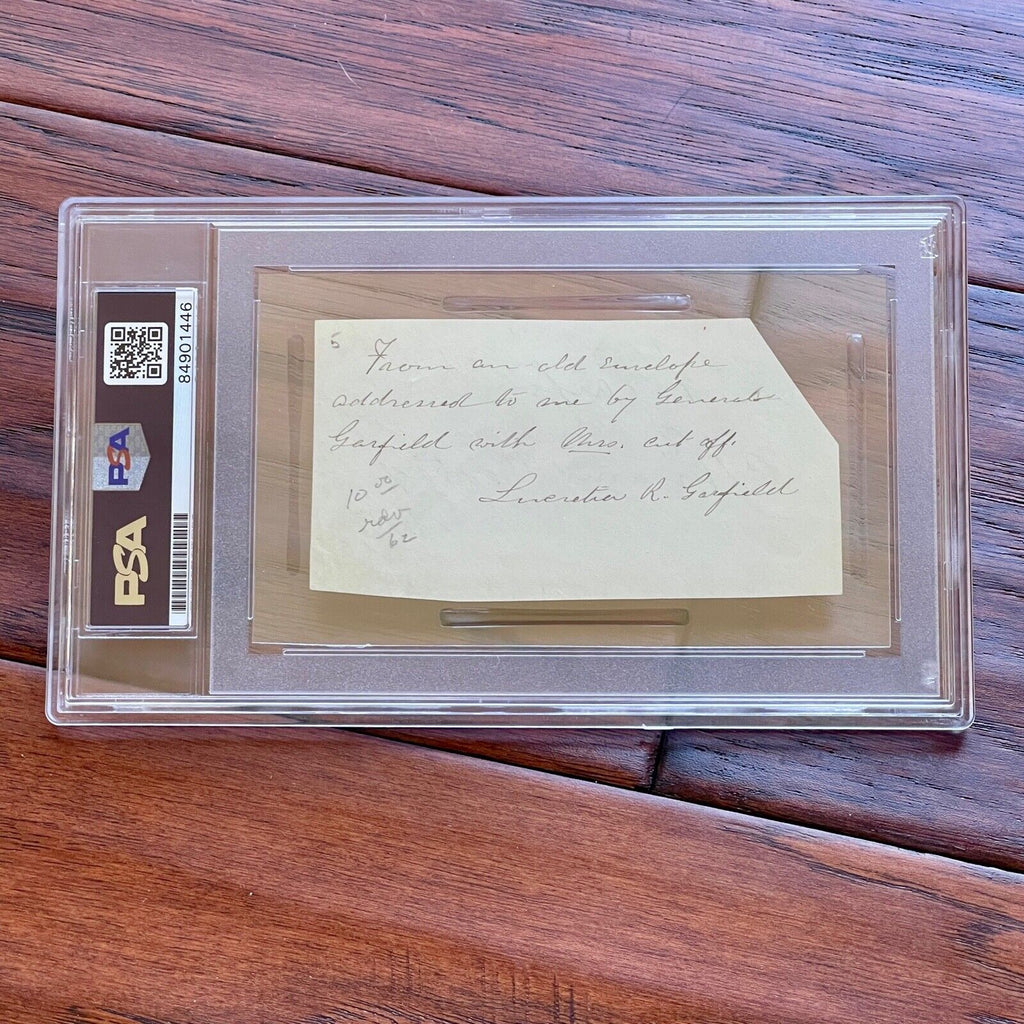 5
From an old envelope
addressed to me by General
Garfield with Mrs. cut off.
Lucretia R. Garfield
10 00
62
84901446
PSA
PSA